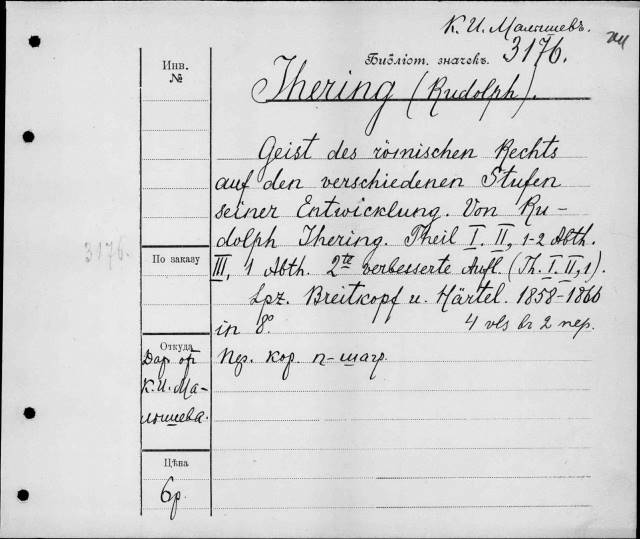 К. И. Малышевъ.
Библіот. значекъ. 3176.
Инв. №
Jhering (Rudolph).
Geist des römischen Rechts
auf den verschiedenen Stufen
seiner Entwicklung. Von Ru-
dolph Jhering. Theil I. II, 1-2 Abth.
3176.
По заказу
III, 1 Abth. 2te verbesserte Aufl. (Th. I. II, 1).
Lpz. Breitkopf u. Härtel. 1858-1866
in 8º. 4 vls въ 2 пер.
Откуда
Дар. от К. И. Ма-лышева.
кор. п-шагр.
Цѣна
6р.